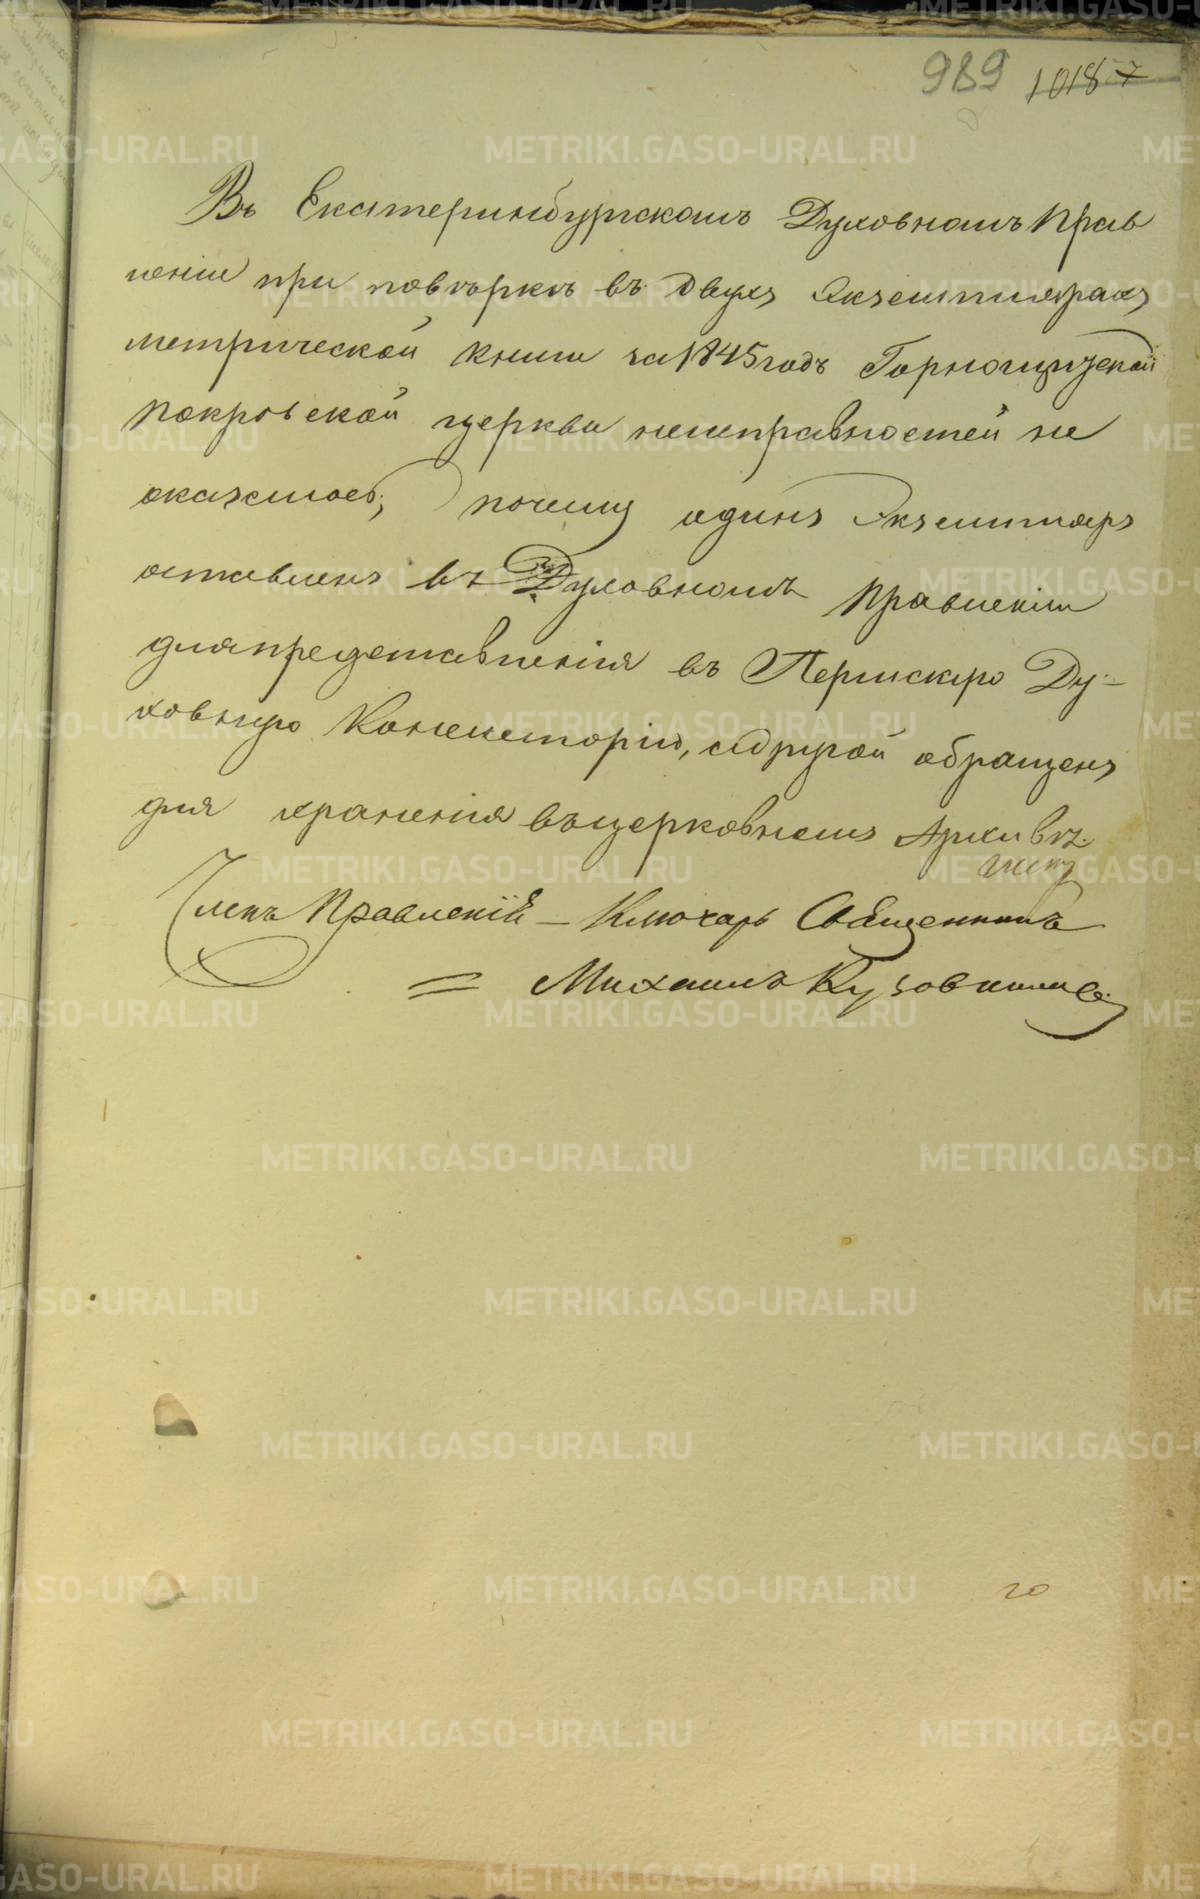 989 1018
Въ Екатеринбургскомъ Духовномъ Прав
леніи при повѣркѣ въ двухъ Экземплярахъ
метрической книги за 1845 годъ Горнощитской
Покровской церкви неисправностей не
оказалось, почему одинъ Экземпляръ
оставленъ въ Духовномъ Правленіи
для представленія въ Пермскую Ду-
ховную Консисторію, а другой обращенъ
для храненія въ церковномъ Архивѣ.
Членъ Правленія – Ключарь Священникъ
= Михаилъ
20
METRIKI.GASO-URAL.RU